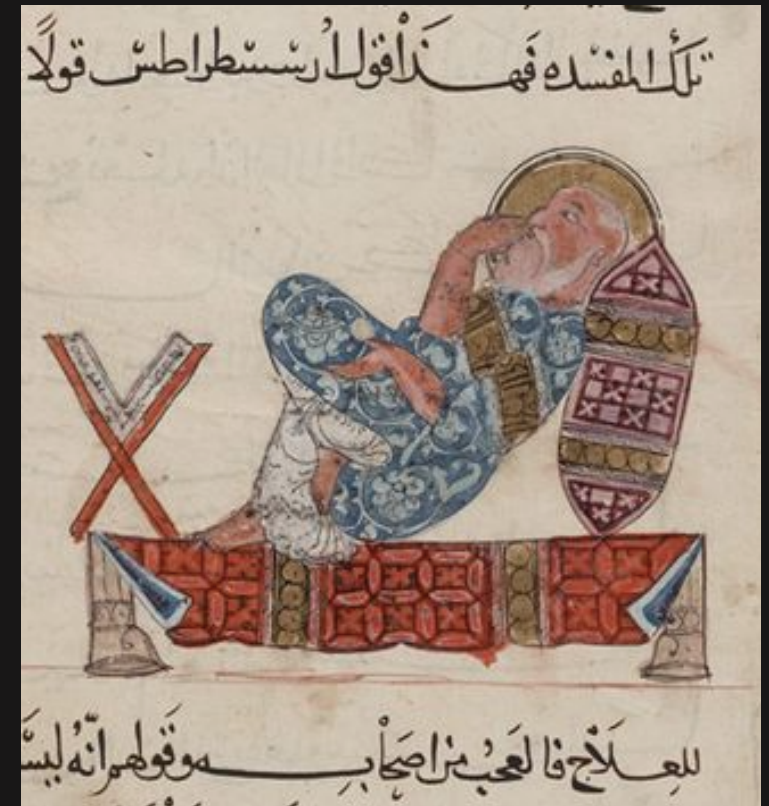 تلك المفسده فهذا قول ارسسطراطس قولًا
للعلاج فالعجب من اصحابه وقولهم انّه ليس